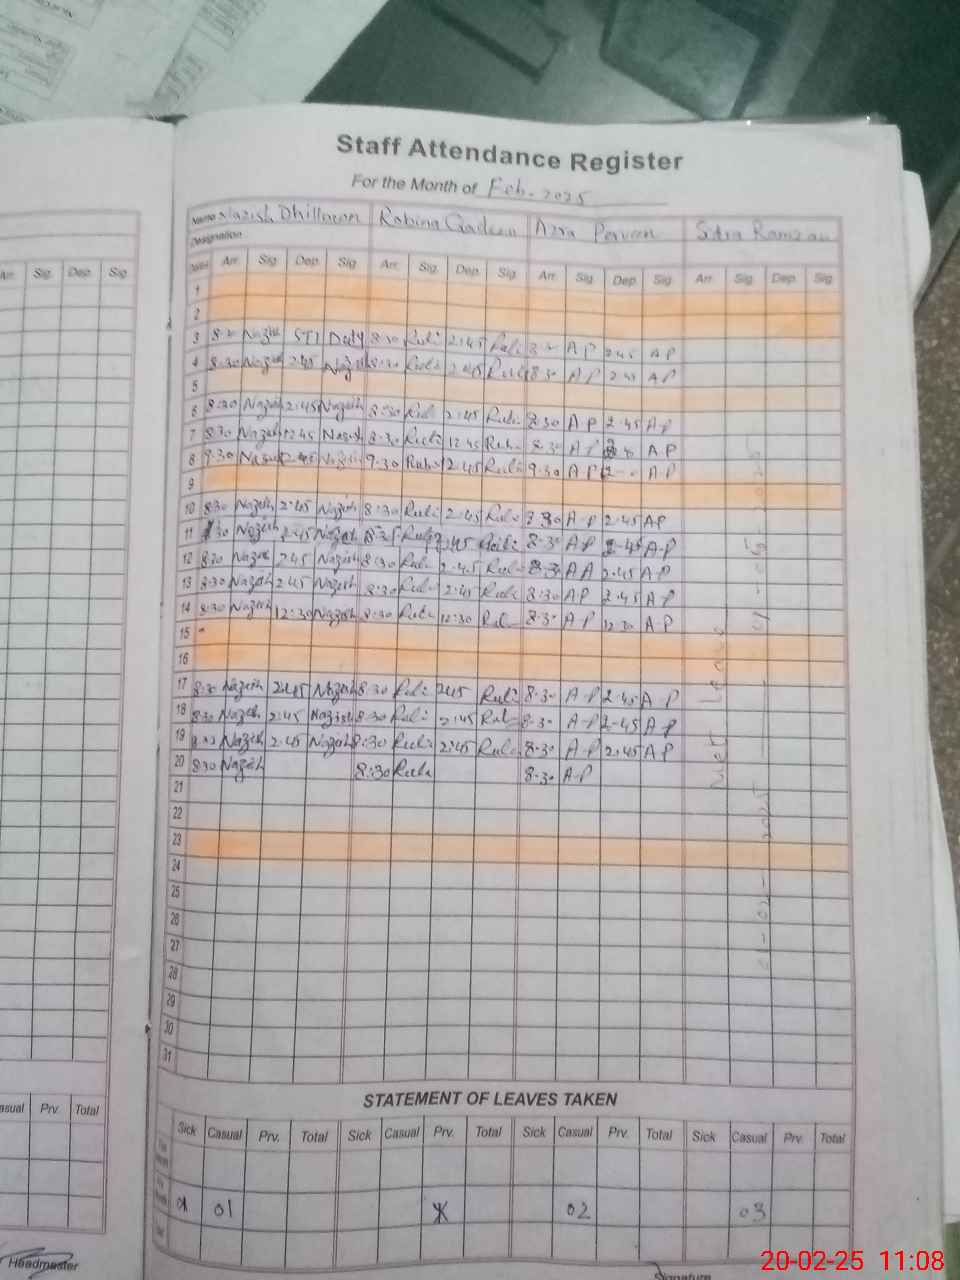 Staff Attendance Register
For the Month of Feb-2025
Name Nazish Dhilloon Robina Qadeer Azra Perveen Sidra Ramzan
Designation
Dates Arr. Sig. Dep. Sig. Arr. Sig. Dep. Sig. Arr. Sig. Dep. Sig. Arr. Sig. Dep. Sig.
1
2
3 8:30 Nazish STI Duty 8:30 Rubi 2:45 Rubi A P 2:45 A P
4 8:30 Nazish 2:45 Nazish 8:30 Rubi 2:45 Rubi 8:30 A P 2:45 A P
5
6 8:30 Nazish 2:45 Nazish 8:30 Rubi 2:45 Rubi 8:30 A P 2:45 A P
7 8:30 Nazish 12:45 Nazish 8:30 Rubi 12:45 Rubi 8:30 A P A P
8 9:30 Nazish 2:45 Nazish 9:30 Rubi 2:45 Rubi 9:30 A P A P
9
10 8:30 Nazish 2:45 Nazish 8:30 Rubi 2:45 Rubi 8:30 A-P 2:45 AP
11 8:30 Nazish 2:45 Nazish Rubi 2:45 Rubi 8:30 A P 2:45 A-P
12 8:30 Nazish 2:45 Nazish 8:30 Rubi 2:45 Rubi 8:30 A A 2:45 A P
13 8:30 Nazish 2:45 Nazish 8:30 Rubi 2:45 Rubi 8:30 A P 2:45 A-P
14 8:30 Nazish 12:30 Nazish 8:30 Rubi 12:30 Rubi 8:30 A P 12:30 A-P
15
16
17 8:30 Nazish 2:45 Nazish 8:30 Rubi 2:45 Rubi 8:30 A-P 2:45 A-P
18 8:30 Nazish 2:45 Nazish 8:30 Rubi 2:45 Rubi 8:30 A-P 2:45 A-P
19 8:30 Nazish 2:45 Nazish 8:30 Rubi 2:45 Rubi 8:30 A P 2:45 A P
20 8:30 Nazish 8:30 Rubi 8:30 A-P
21
22
23
24
25
26
27
28
29
30
31
STATEMENT OF LEAVES TAKEN
Sick Casual Prv. Total Sick Casual Prv. Total Sick Casual Prv. Total Sick Casual Prv. Total
01 02 03
Arr. Sig. Dep. Sig
asual Prv. Total
Headmaster
Signature
20-02-25 11:08